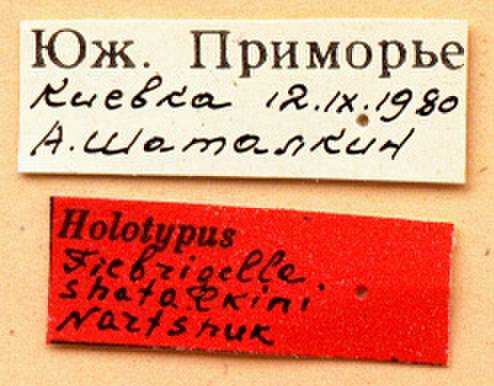 Юж. Приморье
Киевка 12.IX.1980
А. Шаталкин
Holotypus
Fiebrigella
shatalkini
Nartshuk